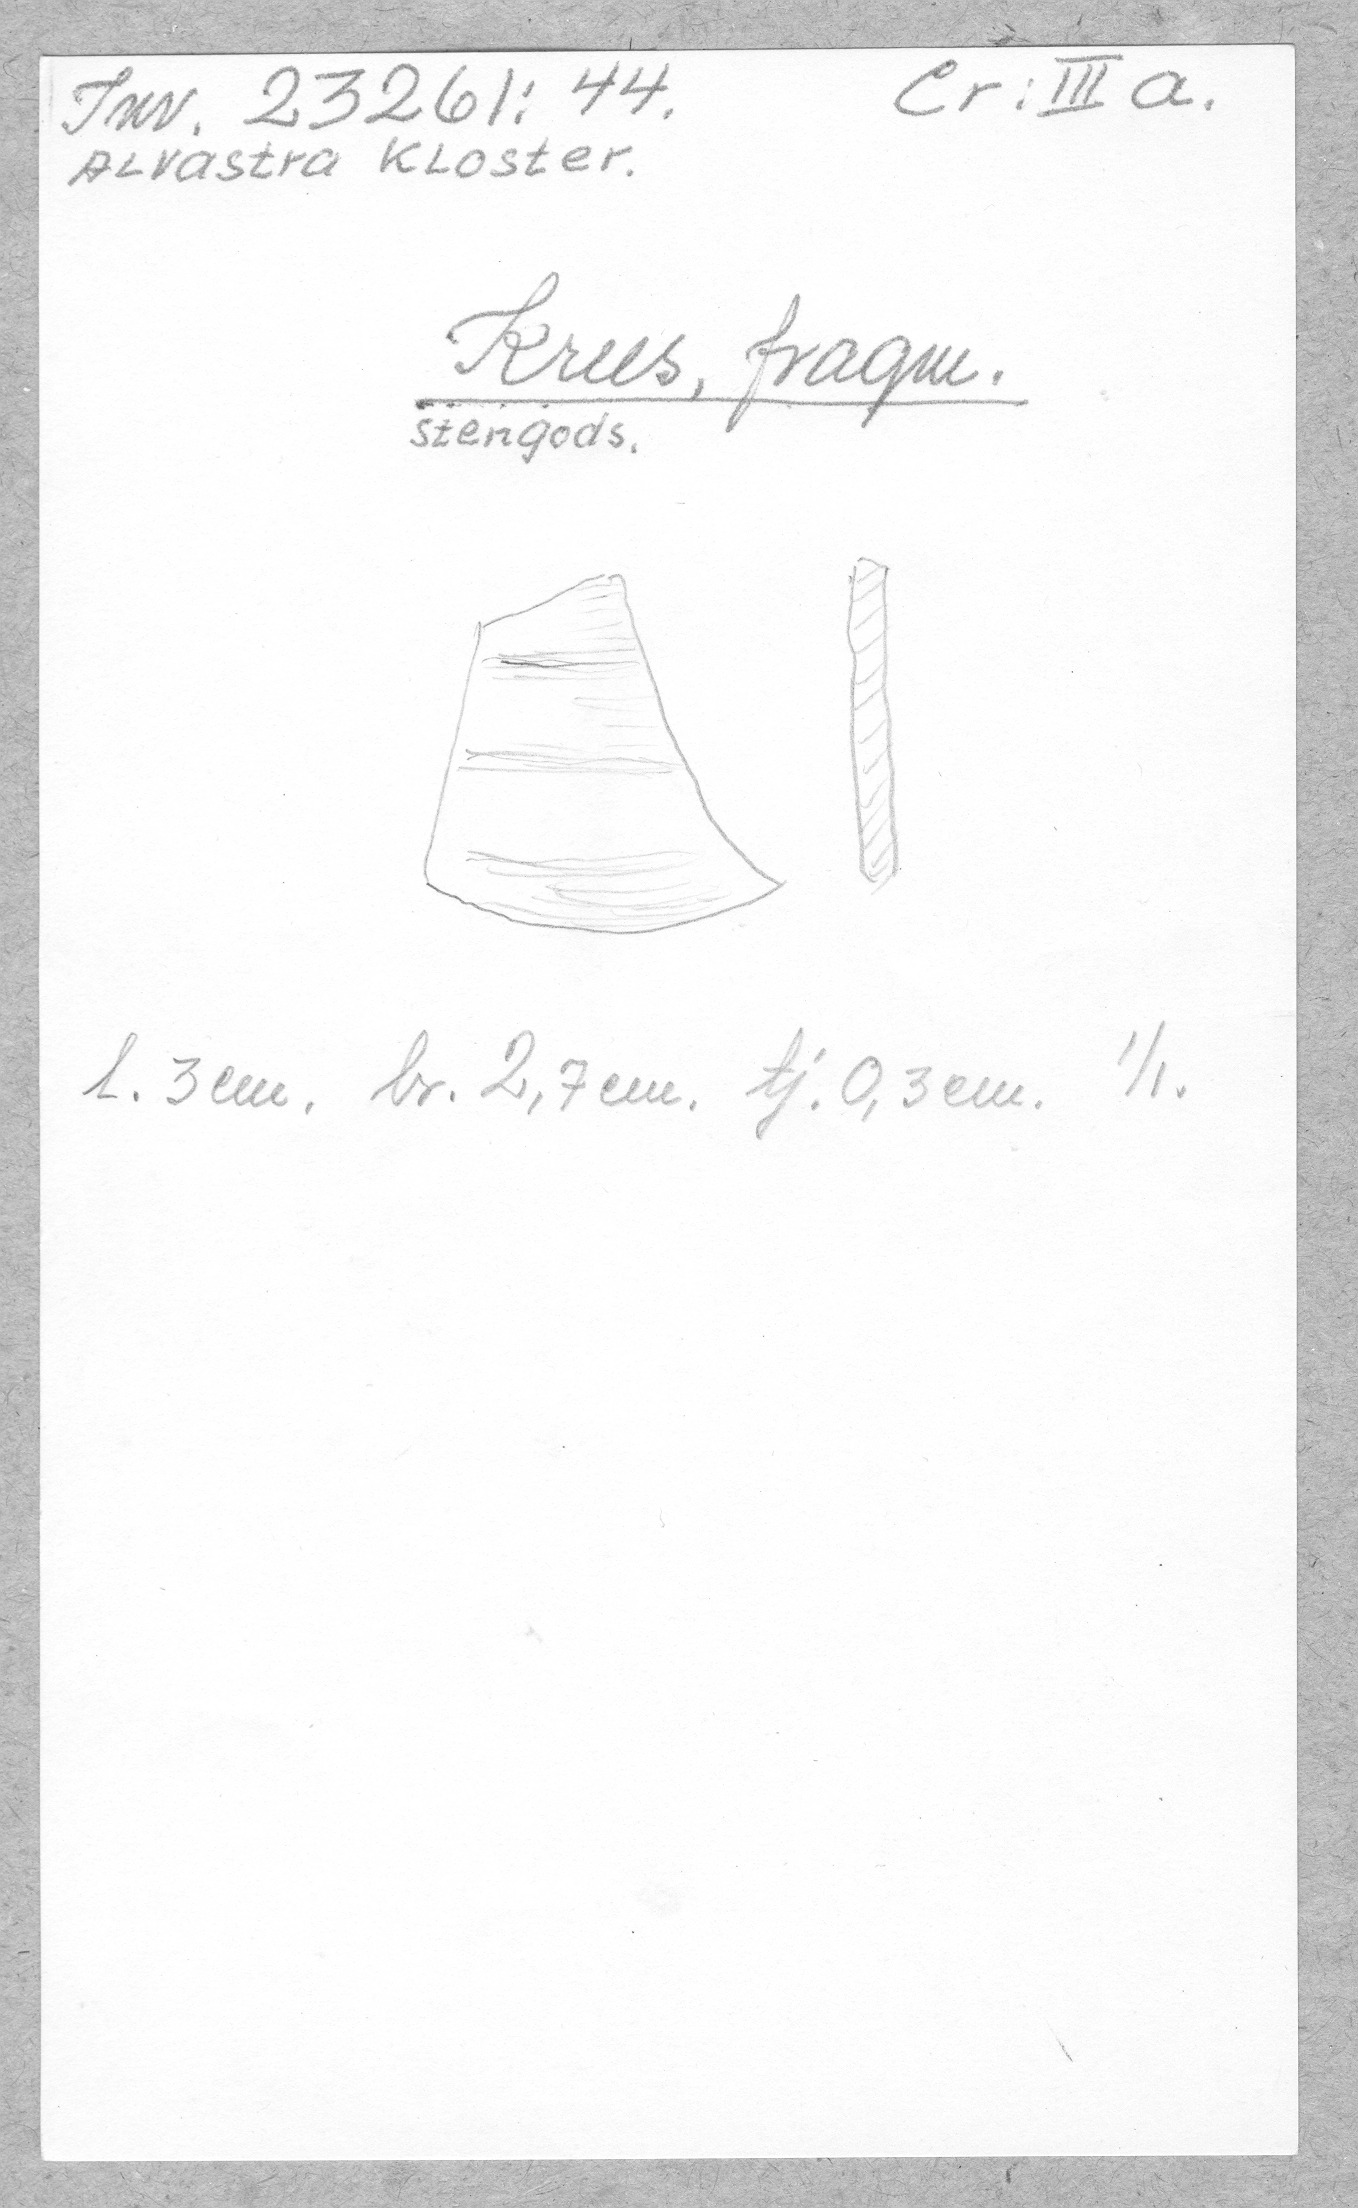 Inv. 23261: 44. Cr: III a.
Alvastra Kloster.
Krus, fragm.
stengods.
l. 3 cm. br. 2,7 cm. tj. 0,3 cm. 1/1.